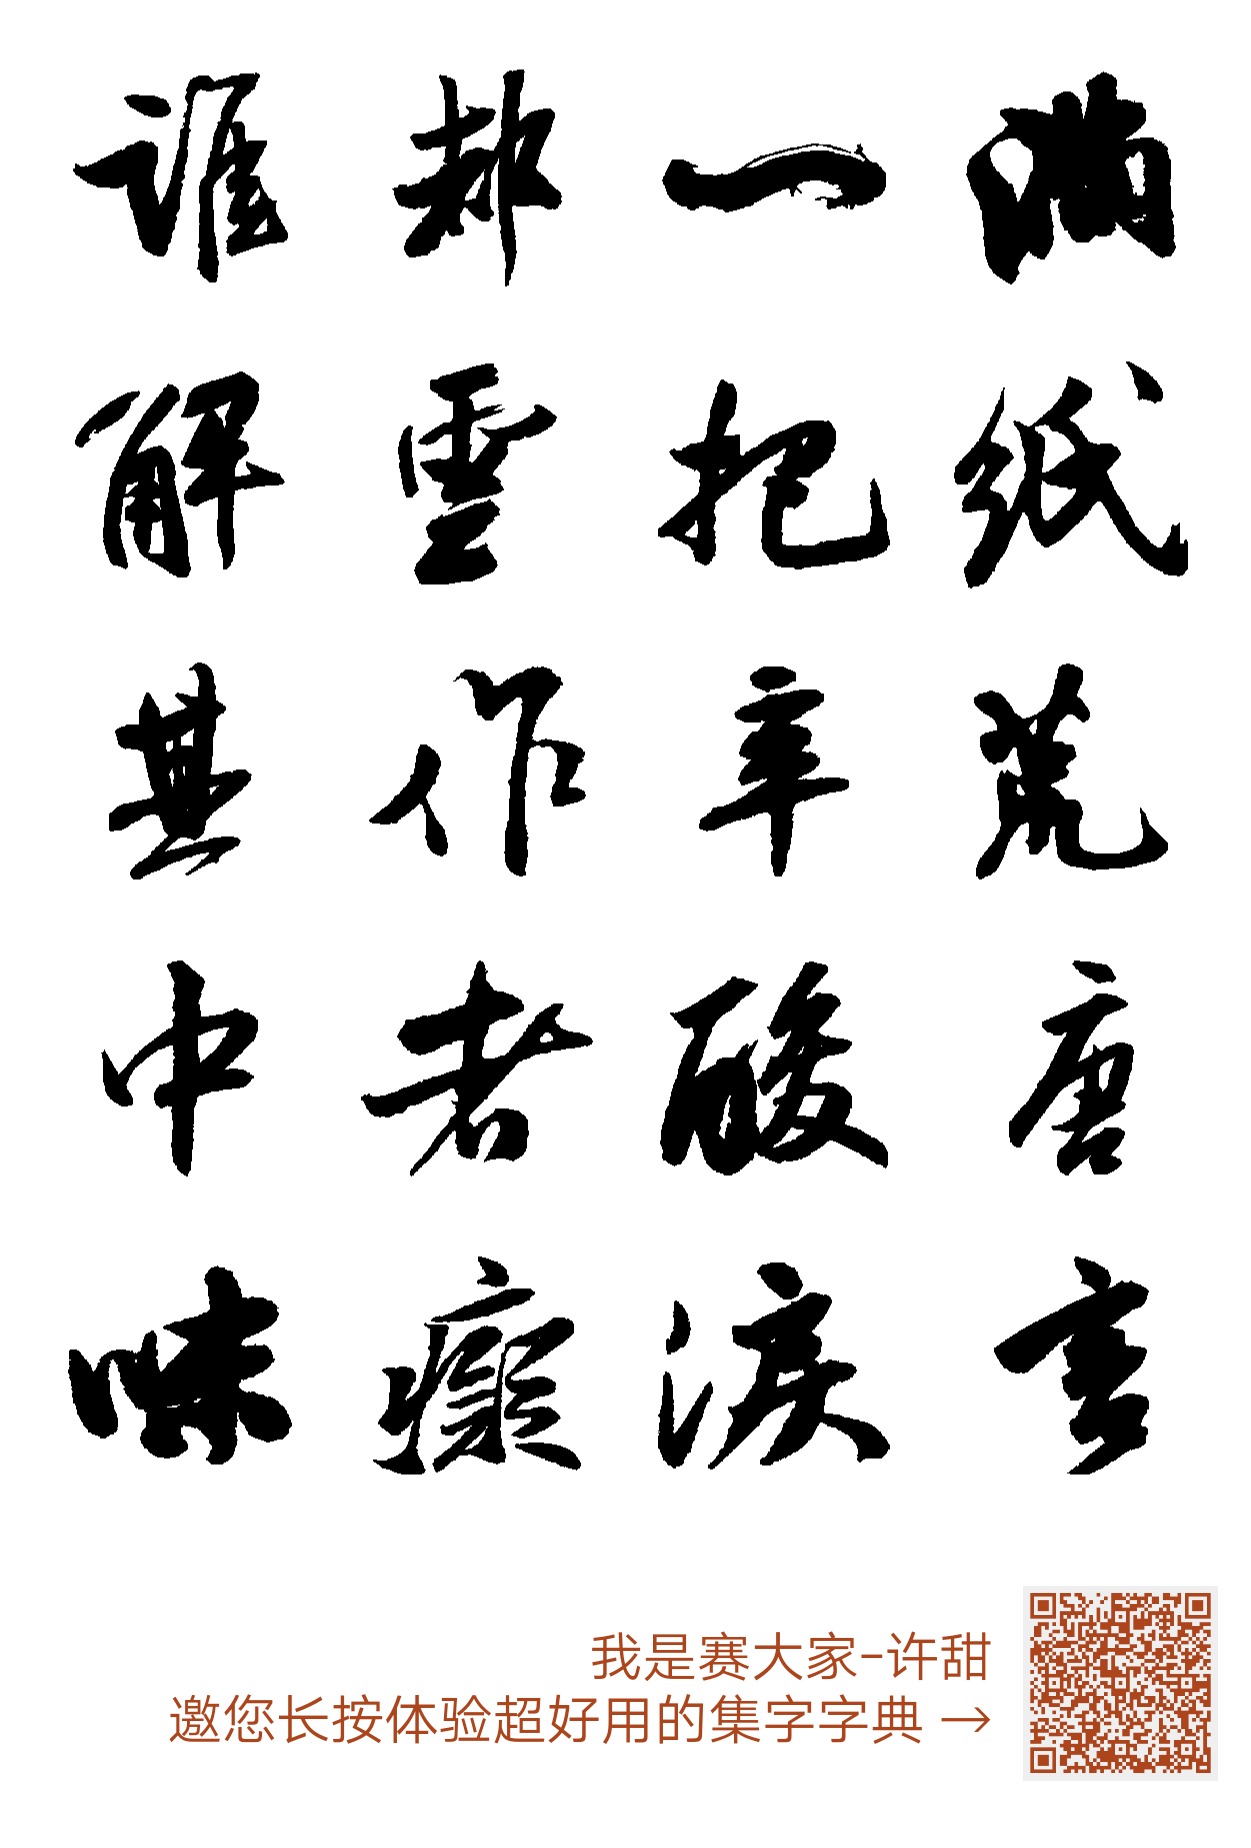 满纸荒唐言
一把辛酸淚
都雲作者癡
誰解其中味
我是赛大家-许甜
邀您长按体验超好用的集字字典 →